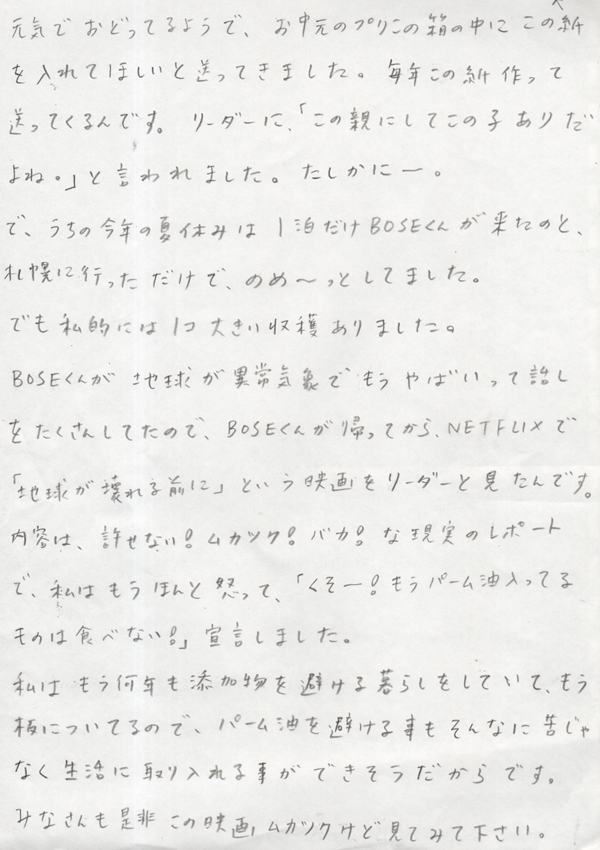 元気で おどってるようで、お中元のプリンの箱の中に この紙
を入れてほしいと送ってきました。毎年この紙作って
送ってくるんです。リーダーに、「この親にしてこの子ありだ
よね。」と言われました。たしかにー。
で、うちの今年の夏休みは 1泊だけBOSEくんが来たのと、
札幌に行っただけで、のめ〜っとしてました。
でも私的には1コ大きい収穫ありました。
BOSEくんが 地球が異常気象で もう やばいって話し
をたくさんしてたので、BOSEくんが帰ってから、NETFLIXで
「地球が壊れる前に」という映画をリーダーと見たんです。
内容は、許せない!ムカツク!バカ!な現実のレポート
で、私はもうほんと怒って、「くそー!もうパーム油入ってる
ものは食べない!」宣言しました。
私はもう何年も添加物を避ける暮らしをしていて、もう
板についてるので、パーム油を避ける事もそんなに苦じゃ
なく生活に取り入れる事ができそうだからです。
みなさんも是非この映画ムカツクけど見てみて下さい。